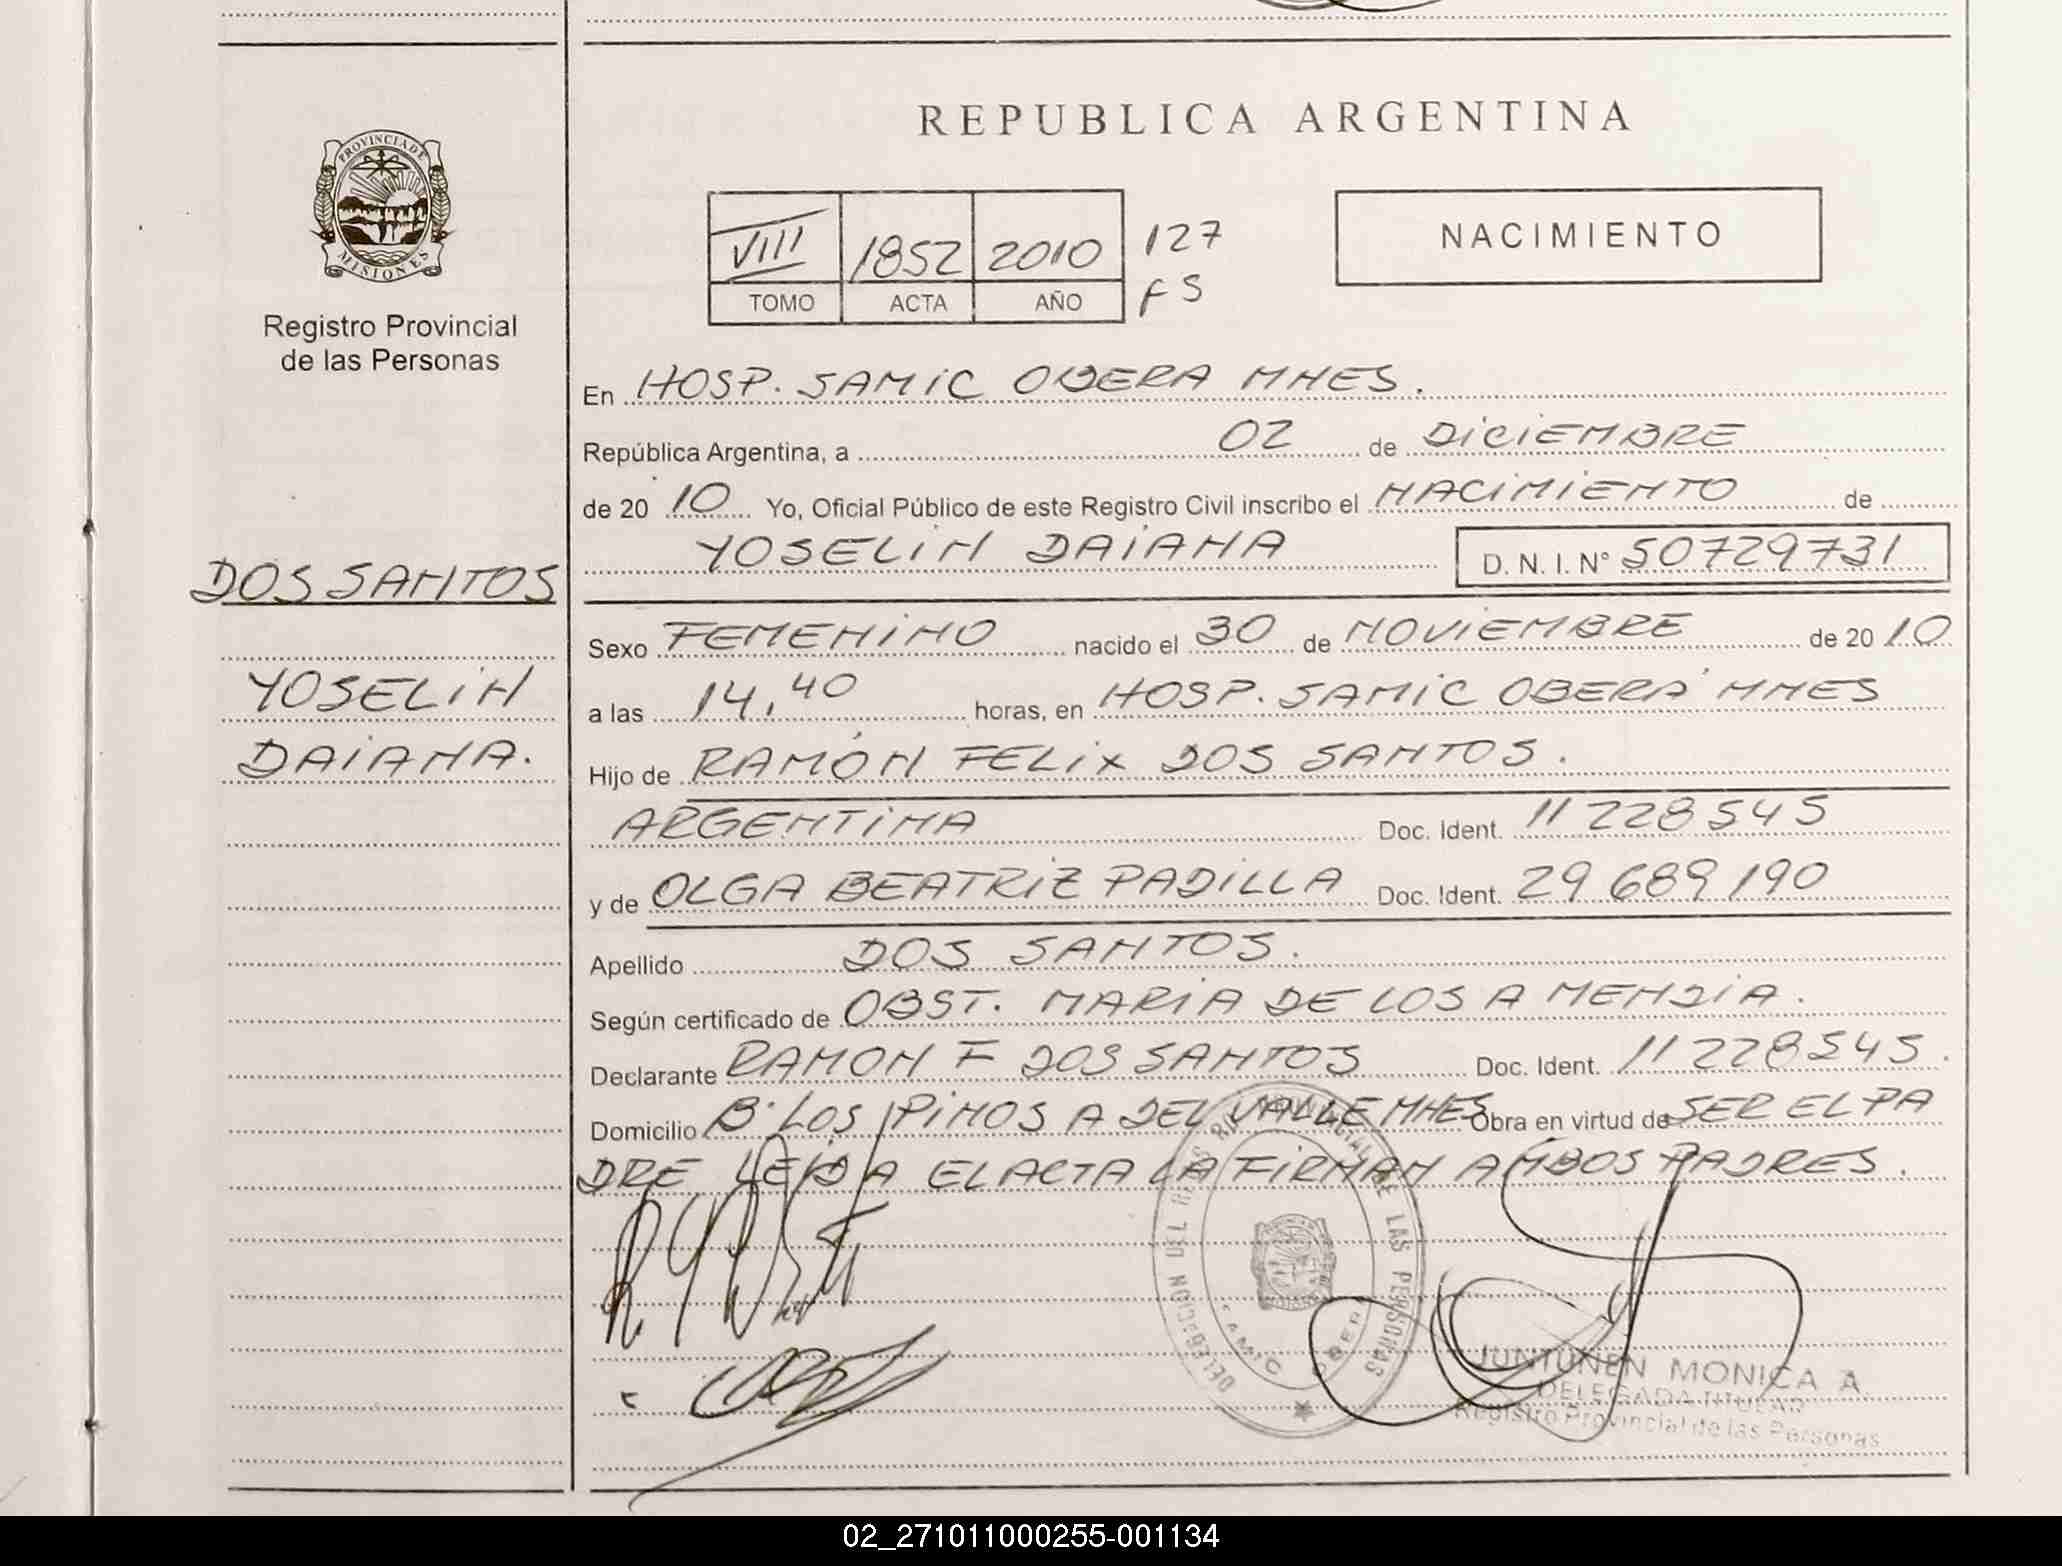 REPUBLICA ARGENTINA
PROVINCIA DE
MISIONES
Registro Provincial
de las Personas
VIII 1852 2010 127
TOMO ACTA AÑO FS
NACIMIENTO
En HOSP. SAMIC OBERA MNES.
República Argentina, a 02 de DICIEMBRE
de 20 10 Yo, Oficial Público de este Registro Civil inscribo el NACIMIENTO de
YOSELIN DAIANA D. N. I. N° 50729731
DOS SANTOS
YOSELIN
DAIANA.
Sexo FEMENINO nacido el 30 de NOVIEMBRE de 20 10
a las 14,40 horas, en HOSP. SAMIC OBERÁ MNES
Hijo de RAMÓN FELIX DOS SANTOS.
ARGENTINA Doc. Ident. 11 228 545
y de OLGA BEATRIZ PADILLA Doc. Ident. 29 689 190
Apellido DOS SANTOS.
Según certificado de OBST. MARIA DE LOS A MENDIA.
Declarante RAMON F DOS SANTOS Doc. Ident. 11 228 545.
Domicilio B. LOS PINOS A DEL VALLE MNES Obra en virtud de SER EL PA
DRE LEIDA EL ACTA LA FIRMAN AMBOS PADRES.
DELEGACION DEL REGISTRO PROVINCIAL DE LAS PERSONAS
SAMIC OBERA
JUNTUNEN MONICA A
DELEGADA TITULAR
Registro Provincial de las Personas
02_271011000255-001134